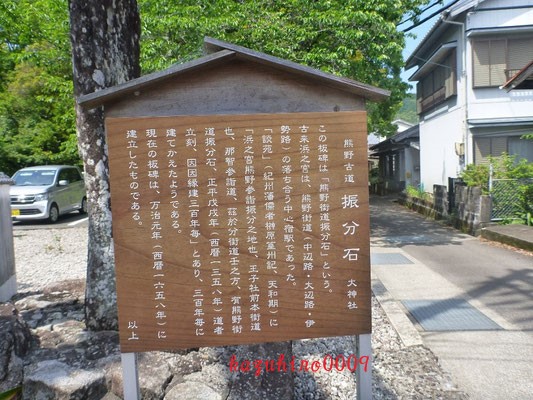 熊野古道 振分石 大神社
この板碑は、「熊野街道振分石」という。
古来浜之宮は、熊野街道(中辺路・大辺路・伊
勢路)の落ち合う中心宿駅であった。
「談苑」(紀州藩儒者榊原篁州記、天和期)に
「浜之宮熊野参詣振分之地也、王子社前本街道
也、那智参詣道、茲於分街道壬之方、有熊野街
道振分石、正平戊戌年(西暦一三五八年)道者
立刻、因因縁建三百年毎」とあり、三百年毎に
建てかえたようである。
現在の板碑は、万治元年(西暦一六五八年)に
建立したものである。
以上
haguhiro0009